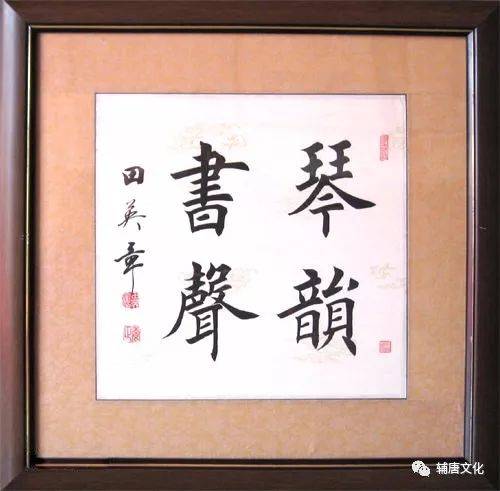 琴韻
書聲
田英章
辅唐文化